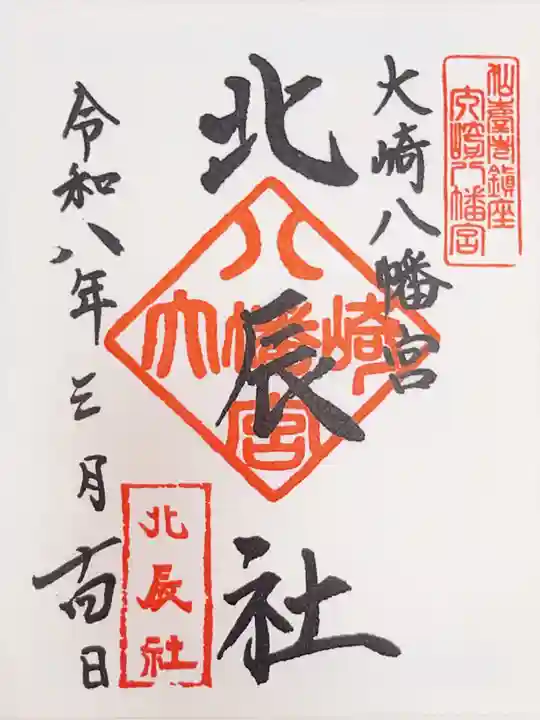 仙臺市鎮座
大崎八幡宮
大崎八幡宮
北辰社
大崎八幡宮
令和八年三月十四日
北辰社